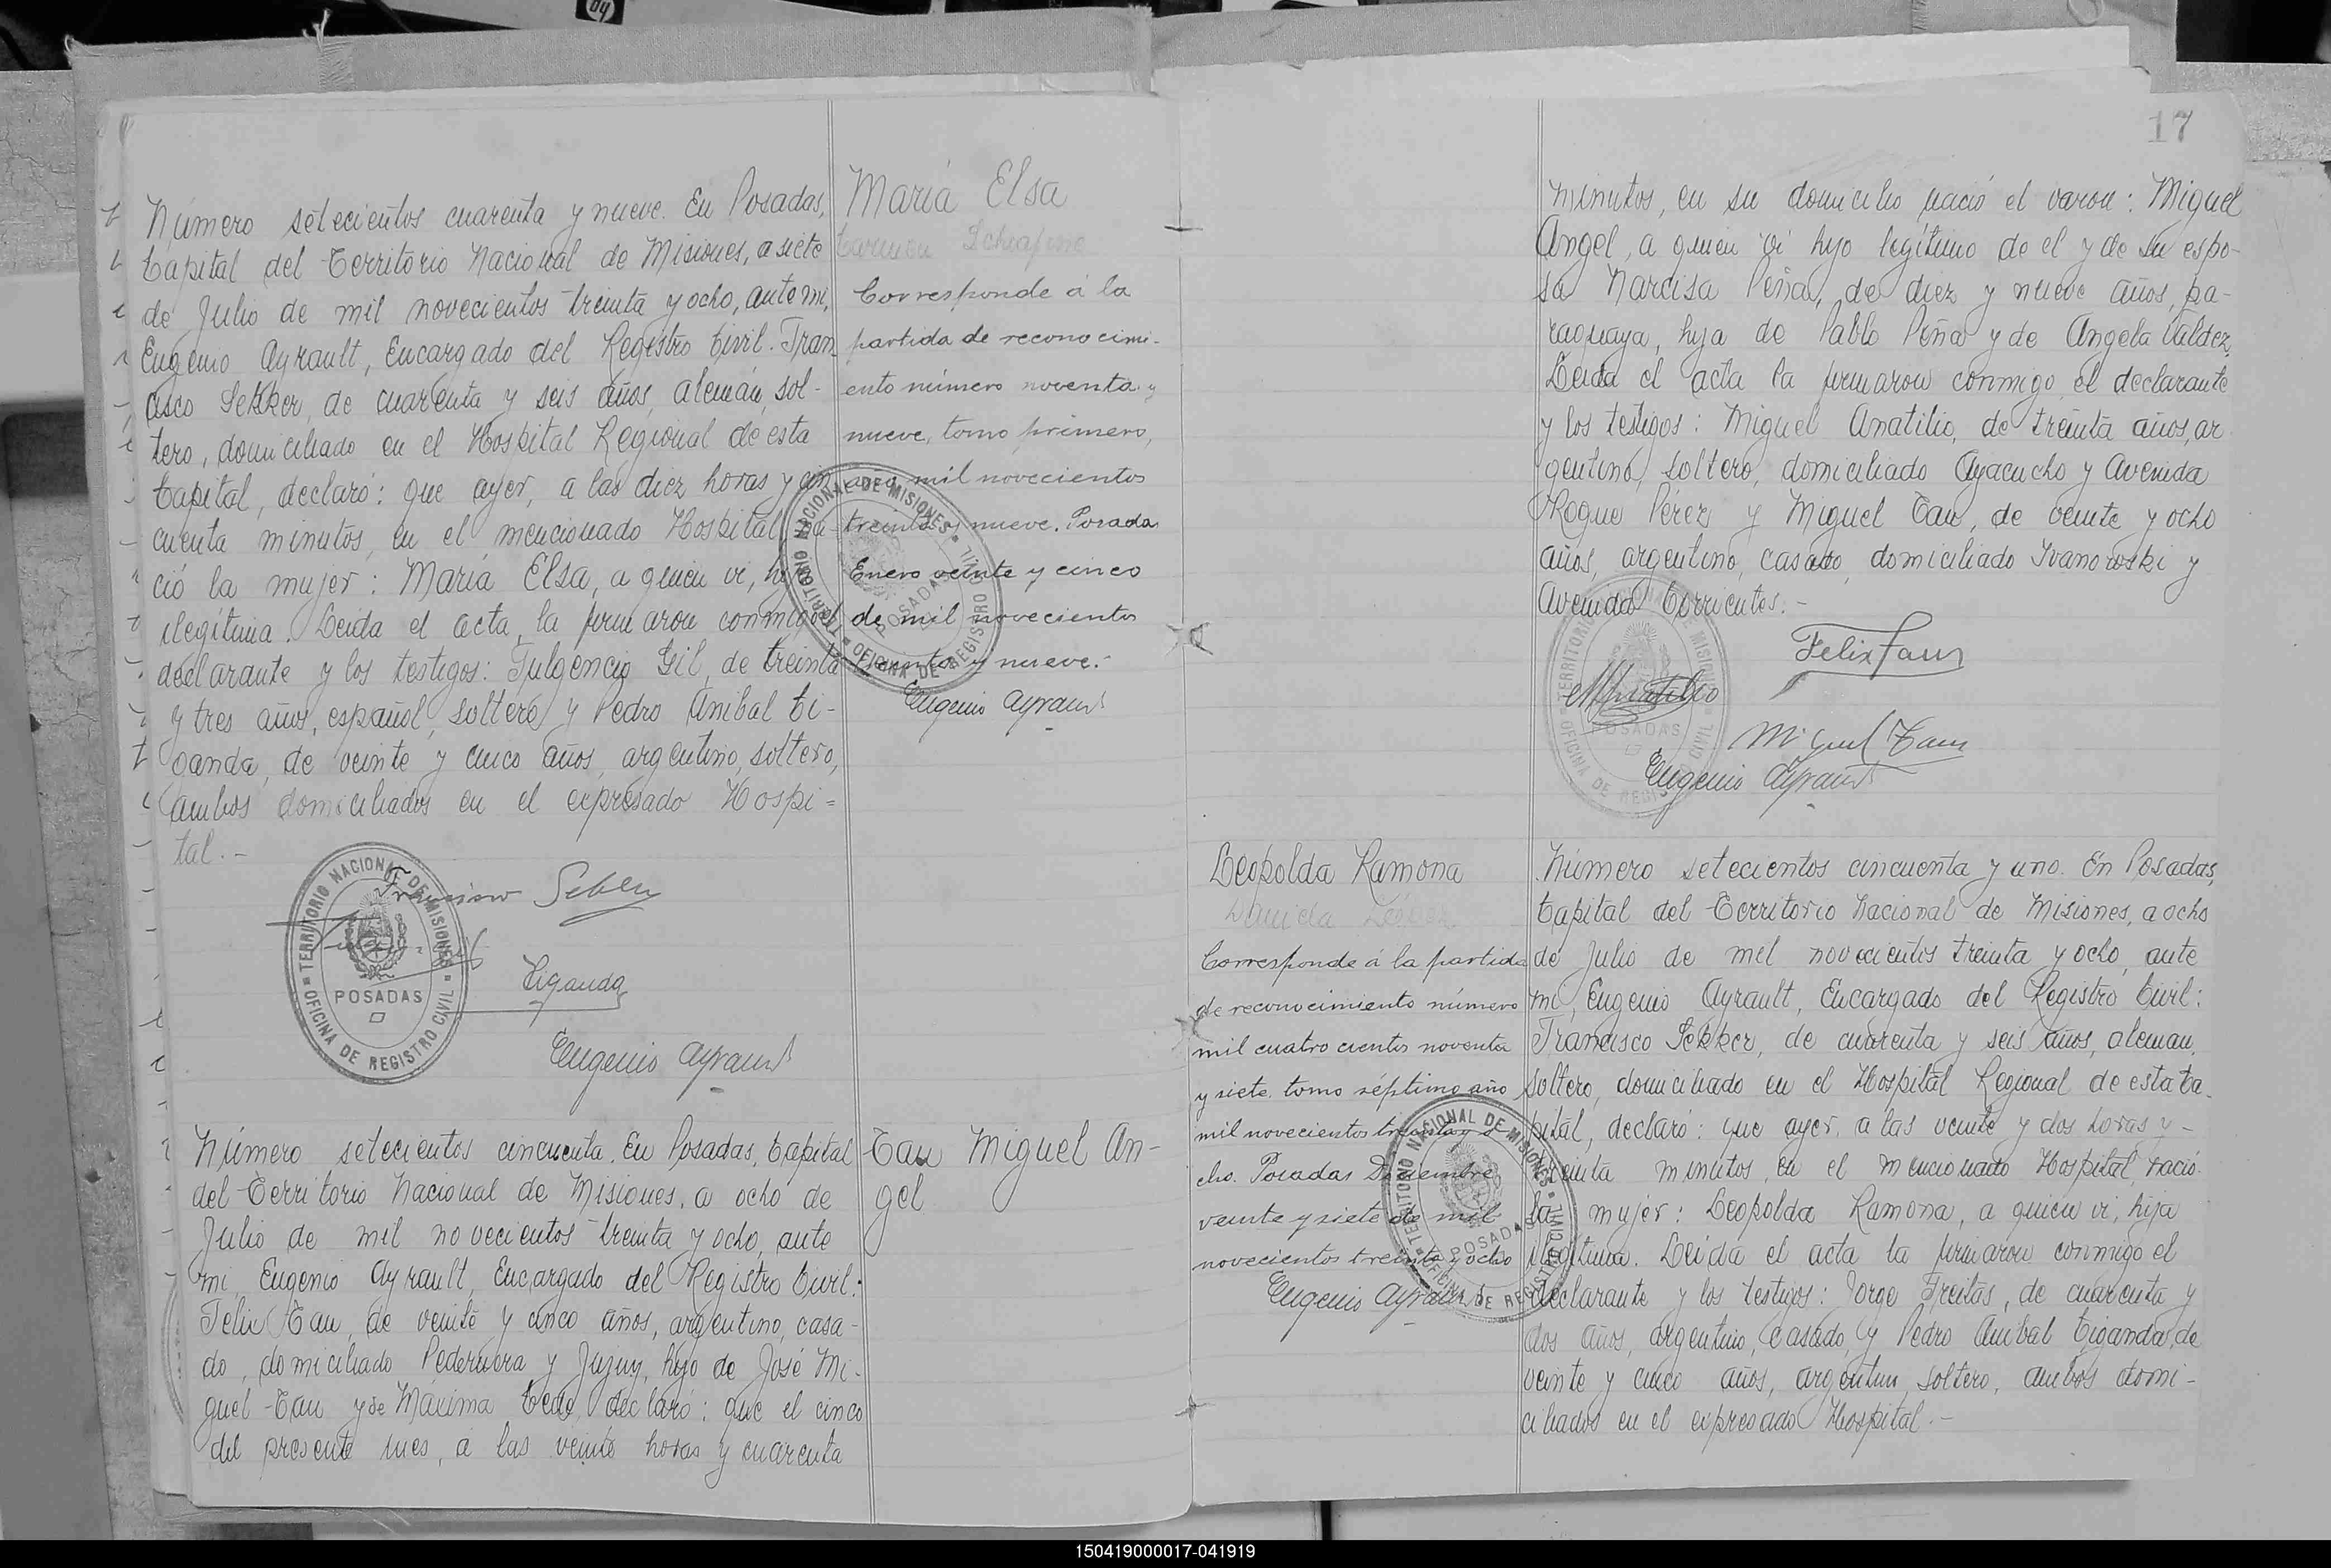 Número setecientos cuarenta y nueve. En Posadas,
Capital del Territorio Nacional de Misiones, a siete
de Julio de mil novecientos treinta y ocho, ante mi,
Eugenio Ayrault, Encargado del Registro Civil. Fran
cisco Sekker, de cuarenta y seis años, alemán, sol-
tero, domiciliado en el Hospital Regional de esta
Capital, declaró: que ayer, a las diez horas y cin
cuenta minutos, en el mencionado Hospital na-
ció la mujer: María Elsa, a quien vi, hija
ilegítima. Leida el acta, la firmaron conmigo el
declarante y los testigos: Fulgencio Gil, de treinta
y tres años, español, soltero y Pedro Anibal Ci-
ganda, de veinte y cinco años, argentino, soltero,
ambos domiciliados en el expresado Hospi=
tal.-
María Elsa
Carmen Schiafino
Corresponde á la
partida de reconocimi-
ento número noventa y
nueve, tomo primero,
año mil novecientos
treinta y nueve. Posadas
Enero veinte y cinco
de mil novecientos
treinta y nueve.-
Eugenio Ayrault
TERRITORIO NACIONAL DE MISIONES
POSADAS
OFICINA DE REGISTRO CIVIL
Ciganda
Eugenio Ayrault
TERRITORIO NACIONAL DE MISIONES
POSADAS
OFICINA DE REGISTRO CIVIL
Número setecientos cincuenta. En Posadas, Capital
del Territorio Nacional de Misiones, a ocho de
Julio de mil novecientos treinta y ocho, ante
mi, Eugenio Ayrault, Encargado del Registro Civil:
Felix Tau, de veinte y cinco años, argentino, casa-
do, domiciliado Pedernera y Jujuy, hijo de José Mi-
guel Tau y de Máxima declaró: que el cinco
del presente mes, a las veinte horas y cuarenta
Tau Miguel An-
gel
17
minutos, en su domicilio nació el varon: Miguel
Angel, a quien vi hijo legítimo de el y de su espo-
sa Narcisa Peña, de diez y nueve años, pa-
raguaya, hija de Pablo Peña y de Angela Valdez,
Leida el acta la firmaron conmigo el declarante
y los testigos: Miguel Anatilio, de treinta años, ar
gentino, soltero, domiciliado Ayacucho y Avenida
Roque Pérez y Miguel Tau, de veinte y ocho
años, argentino, casado, domiciliado Ivanowski y
Avenida Corrientes.-
Felix Tau
Miguel Tau
Eugenio Ayrault
TERRITORIO NACIONAL DE MISIONES
POSADAS
OFICINA DE REGISTRO CIVIL
Leopolda Ramona
Corresponde á la partida
de reconocimiento número
mil cuatro cientos noventa
y siete. tomo séptimo año
mil novecientos treinta y o
cho. Posadas Diciembre
veinte y siete de mil
novecientos treinta y ocho
Eugenio Ayrault
TERRITORIO NACIONAL DE MISIONES
POSADAS
OFICINA DE REGISTRO CIVIL
Número setecientos cincuenta y uno. En Posadas,
Capital del Territorio Nacional de Misiones, a ocho
de Julio de mil novecientos treinta y ocho, ante
mi, Eugenio Ayrault, Encargado del Registro Civil:
Francisco Sekker, de cuarenta y seis años, aleman,
soltero, domiciliado en el Hospital Regional de esta Ca-
pital, declaró: que ayer, a las veinte y dos horas y-
treinta minutos, en el mencionado Hospital, nació
la mujer: Leopolda Ramona, a quien vi, hija
ilegítima. Leida el acta la firmaron conmigo el
declarante y los testigos: Jorge Freitas, de cuarenta y
dos años, argentino, casado, y Pedro Anibal Ciganda, de
veinte y cinco años, argentino, soltero, ambos domi-
ciliados en el expresado Hospital.-
150419000017-041919